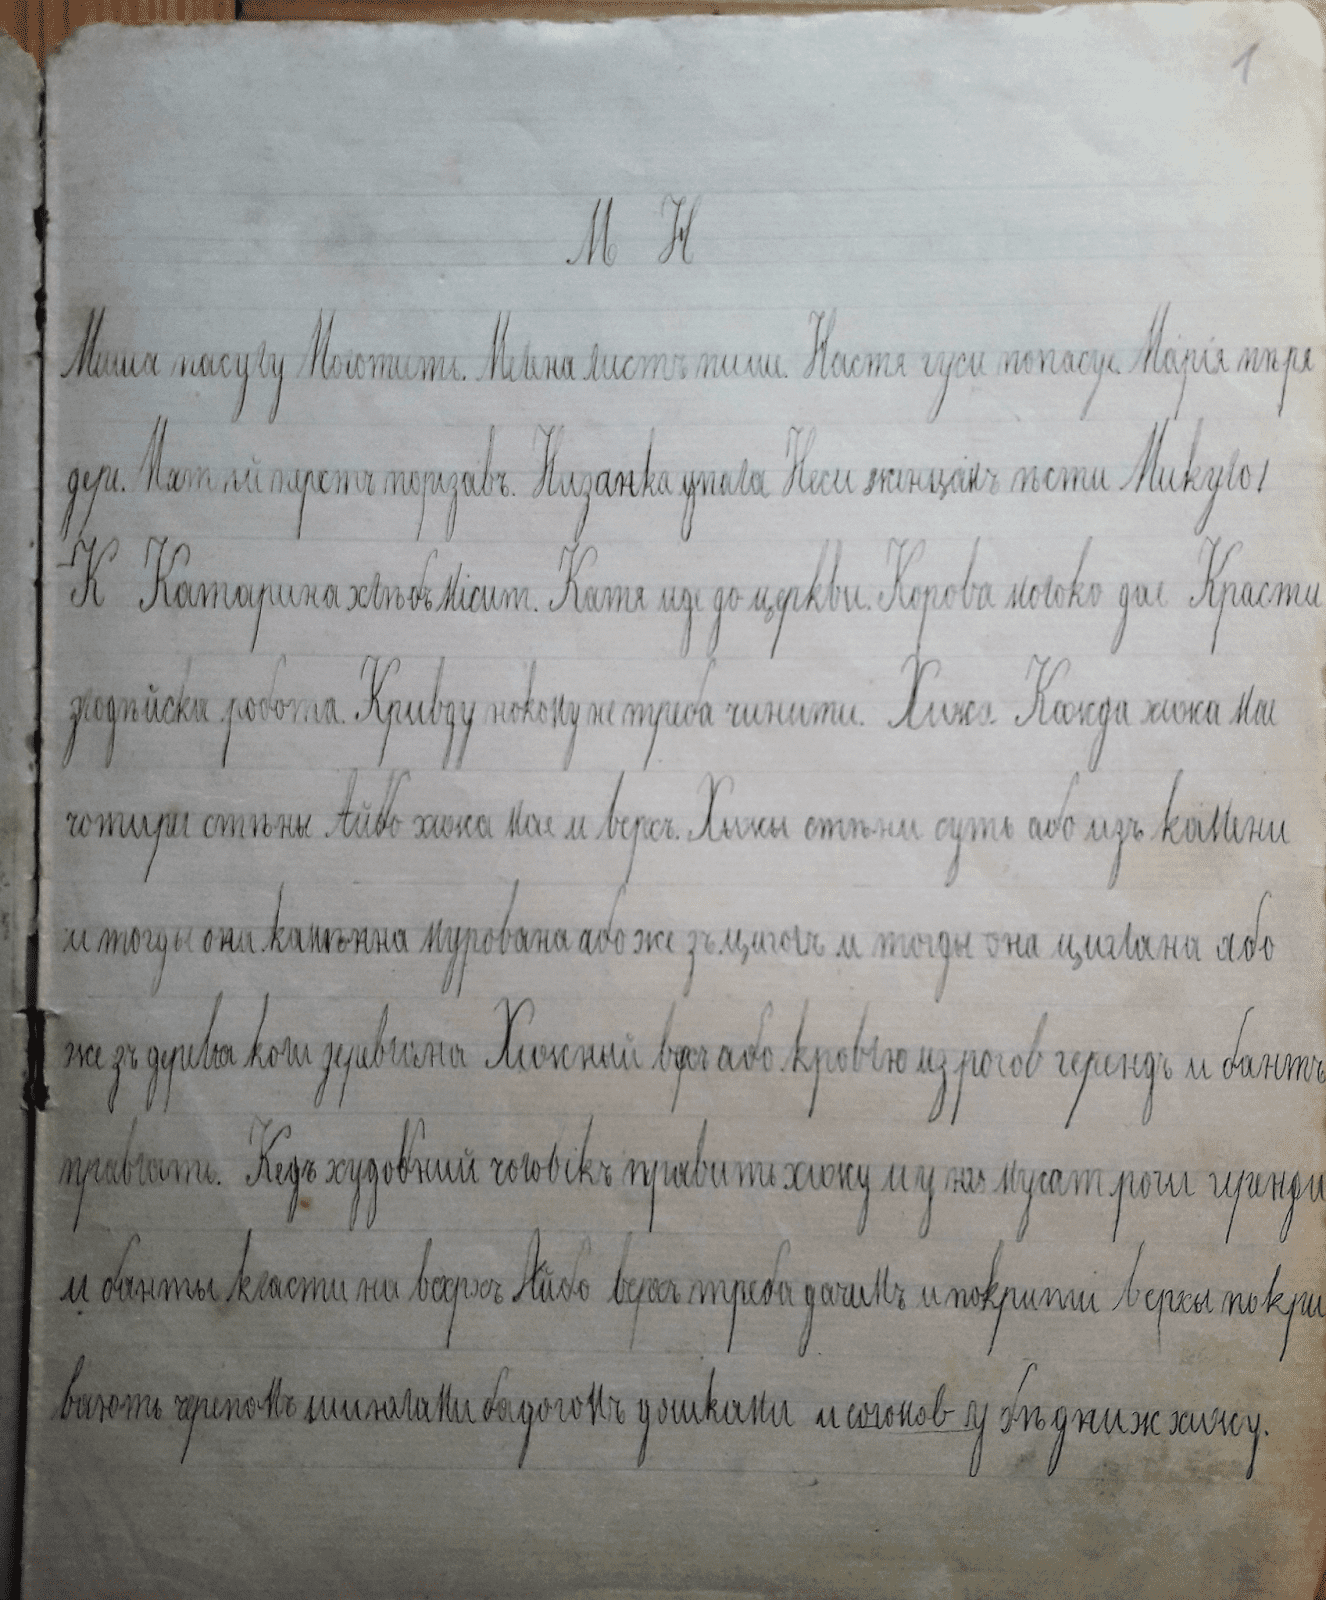 1
М Н
Миша пасулу молотить. Мелана листъ пише. Настя гуси попасує. Марія пѣря
дере. Матѣй перстъ порізавъ. Низанка упала Неси женцамъ ѣсти Микуло!
К Катарина хлѣбъ місит. Катя иде до церкви. Корова молоко дає Красти
злодѣйска робота. Кривду нокому не треба чинити. Хижа. Кажда хижа має
чотири стѣны Айбо хижа має и верхъ. Хыжы стѣни суть або изъ камени
и тогды она камѣнна мурована або же зъ циголъ и тогды она циглана або
же зъ дерева коли деревляна Хижний верхъ або кровлю из рогов герендъ и бантъ
правлять. Кедь худобний чоловікъ править хижу и у ня мусат роги геренди
и банты класти на верхъ Айбо верхъ треба дачимъ и покрити верхы покри
вають черепомъ шинглами бадогомъ дошками и соломов у бѣдниж хижу.